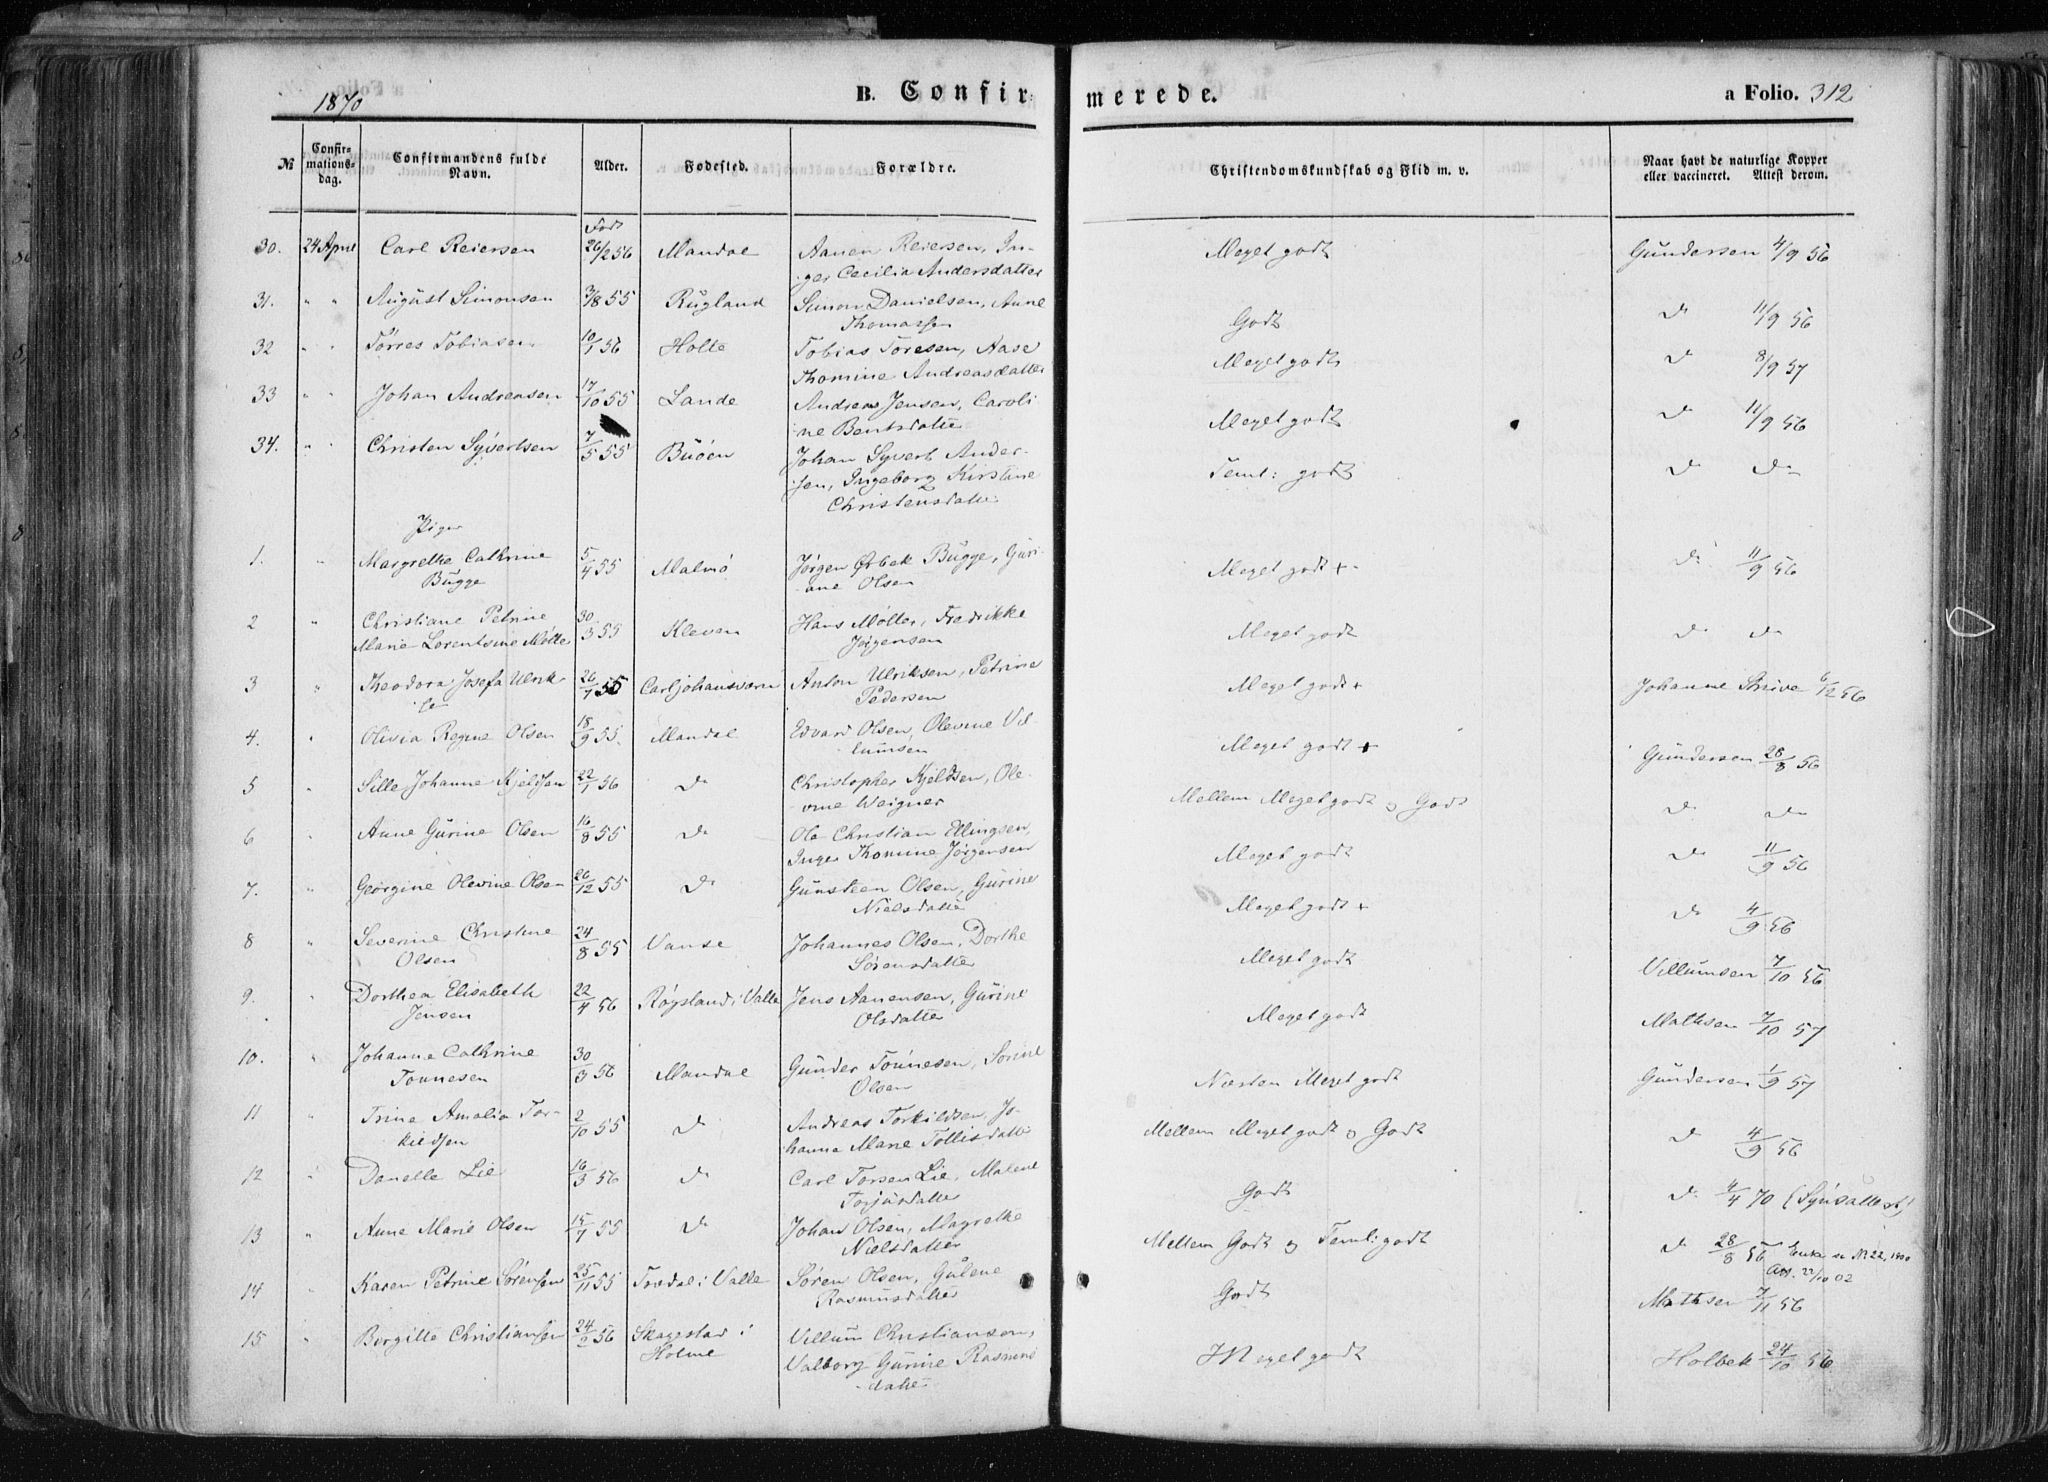 1870
B. Confirmerede.
a Folio. 312
№ Confirmationsdag. Confirmandens fulde Navn. Alder. Fødested. Forældre. Christendomskundskab og Flid m. v. Naar havt de naturlige Kopper eller vaccineret. Attest derom.
Født
30. 24 April Carl Reiersen 26/2 56 Mandal Aanen Reiersen, In- Meget godt Gundersen 4/9 56
ger Cecilia Andersdatter
31. " " August Simonsen 3/8 55 Rugland Simon Danielsen, Anne Godt do 11/9 56
Thomassen
32 " " Tørres Tobiasen 10/1 56 Holte Tobias Toresen, Aase Meget godt do 8/9 57
Thomine Andreasdatter
33 " " Johan Andreasen 17/10 55 Lande Andreas Jensen, Caroli Meget godt do 11/9 56
ne Bentsdatter
34. " " Christen Syvertsen 7/5 55 Buøen Johan Syvert Ander- Teml: godt do do
sen, Ingeborg Kirstine
Christensdatter
Piger
1. " Margrethe Cathrine 5/4 55 Malmø Jørgen Ørbek Bugge, Guri- Meget godt + do 11/9 56
Bugge ane Olsen
2 " Christiane Petrine 30/3 55 Kleven Hans Møller, Fredrikke Meget godt do do
Marie Lorentsine Møller Jørgensen
3 " Theodora Josefa Ulrik 26/1 55 Carljohansværn Anton Ulriksen, Petrine Meget godt + Johanne Strive 6/12 56
sen Pedersen
4. " Olivia Regine Olsen 18/9 55 Mandal Edvard Olsen, Olevine Vil- Meget godt + Gundersen 28/8 56
lumsen
5 " Sille Johanne Kjeldsen 22/1 56 do Christopher Kjeldsen, Ole- Mellem Meget godt og Godt do do
vine Weigner
6 " Anne Gurine Olsen 16/8 55 do Ole Christian Ellingsen, Meget godt do 11/9 56
Inger Thomine Jørgensen
7. " Georgine Olevine Olsen 26/12 55 do Gunsteen Olsen, Gurine Meget godt + do 4/9 56
Nielsdatter
8 " Severine Christine 24/8 55 Vanse Johannes Olsen, Dorthe Meget godt Villumsen 7/10 56
Olsen Sørensdatter
9. " Dorthea Elisabeth 22/4 56 Røysland i Valle Jens Aanensen, Gurine Meget godt Mathsen 7/10 57
Jensen Olsdatter
10. " Johanne Cathrine 30/3 56 Mandal Gunder Tønnesen, Sorine Næsten Meget godt Gundersen 1/9 57
Tønnesen Olsen
11 " Trine Amalia Tor- 2/10 55 do Andreas Torkildsen, Jo- Mellem Meget godt og Godt do 4/9 56
kildsen hanna Marie Tollisdatter
12 " Danelle Lie 16/3 56 do Carl Torsen Lie, Malene Godt do 4/4 70 (Synsattest)
Torjusdatter
13 " Anne Marie Olsen 15/7 55 do Johan Olsen, Magrethe Mellem Godt og Teml: godt do 28/8 56 Enke se Nr 22, 1900
Nielsdatter Att. 22/10 02
14 " Karen Petrine Sørensen 25/11 55 Trædal i Valle Søren Olsen, Gulene Godt Mathsen 7/11 56
Rasmusdatter
15 " Bergitte Christiansen 24/2 56 Skagestad i Villum Christiansen, Meget godt Holbek 24/10 56
Holme Valborg Gurine Rasmus
datter